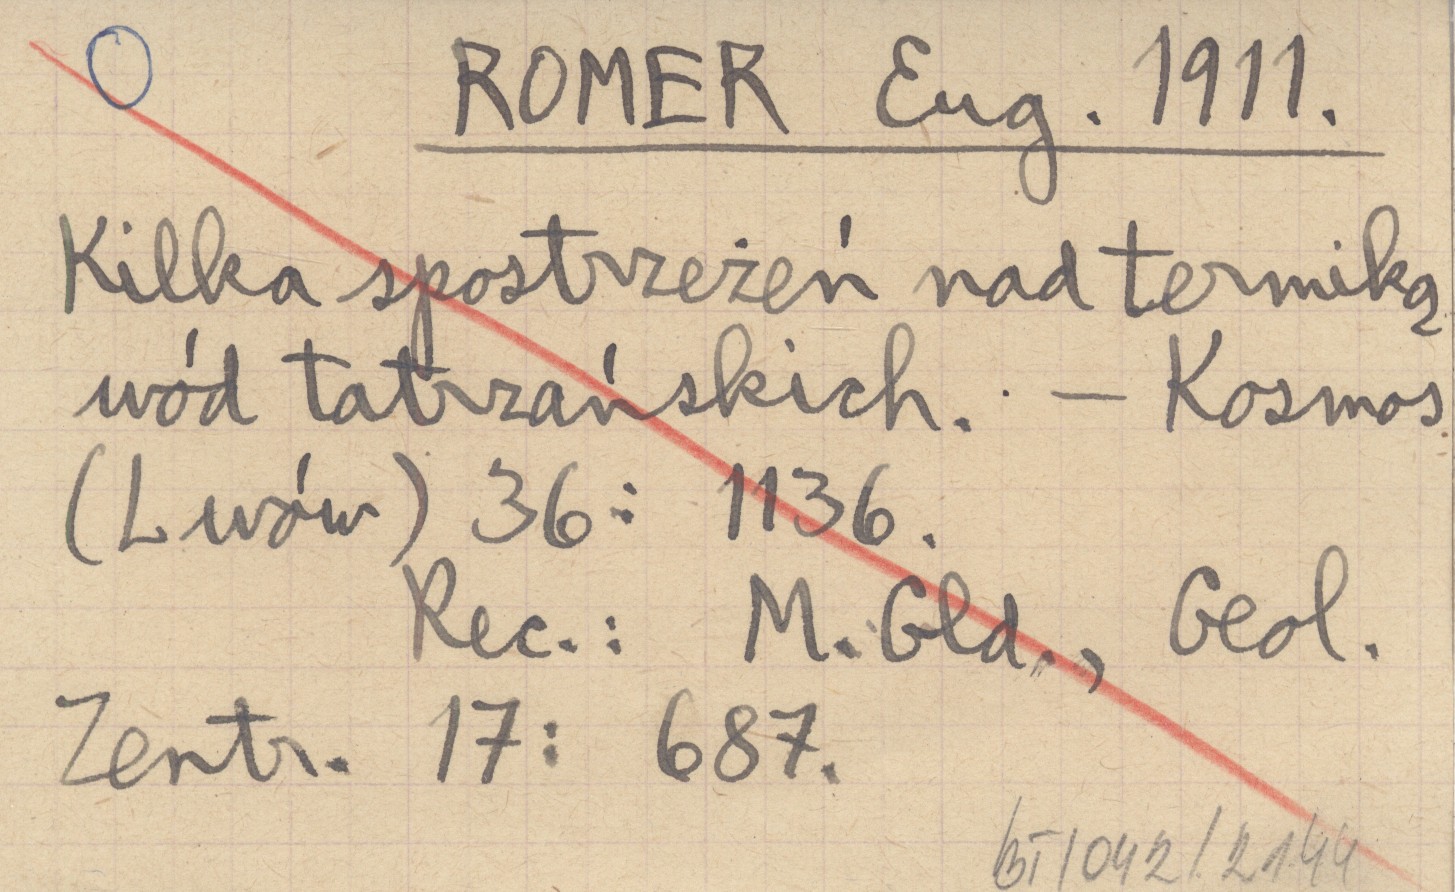 ROMER Eug. 1911.
Kilka spostrzeżeń nad termiką
wód tatrzańskich. – Kosmos
(Lwów) 36: 1136.
Rec.: M. Gld., Geol.
Zentr. 17: 687.
BT/042/2144